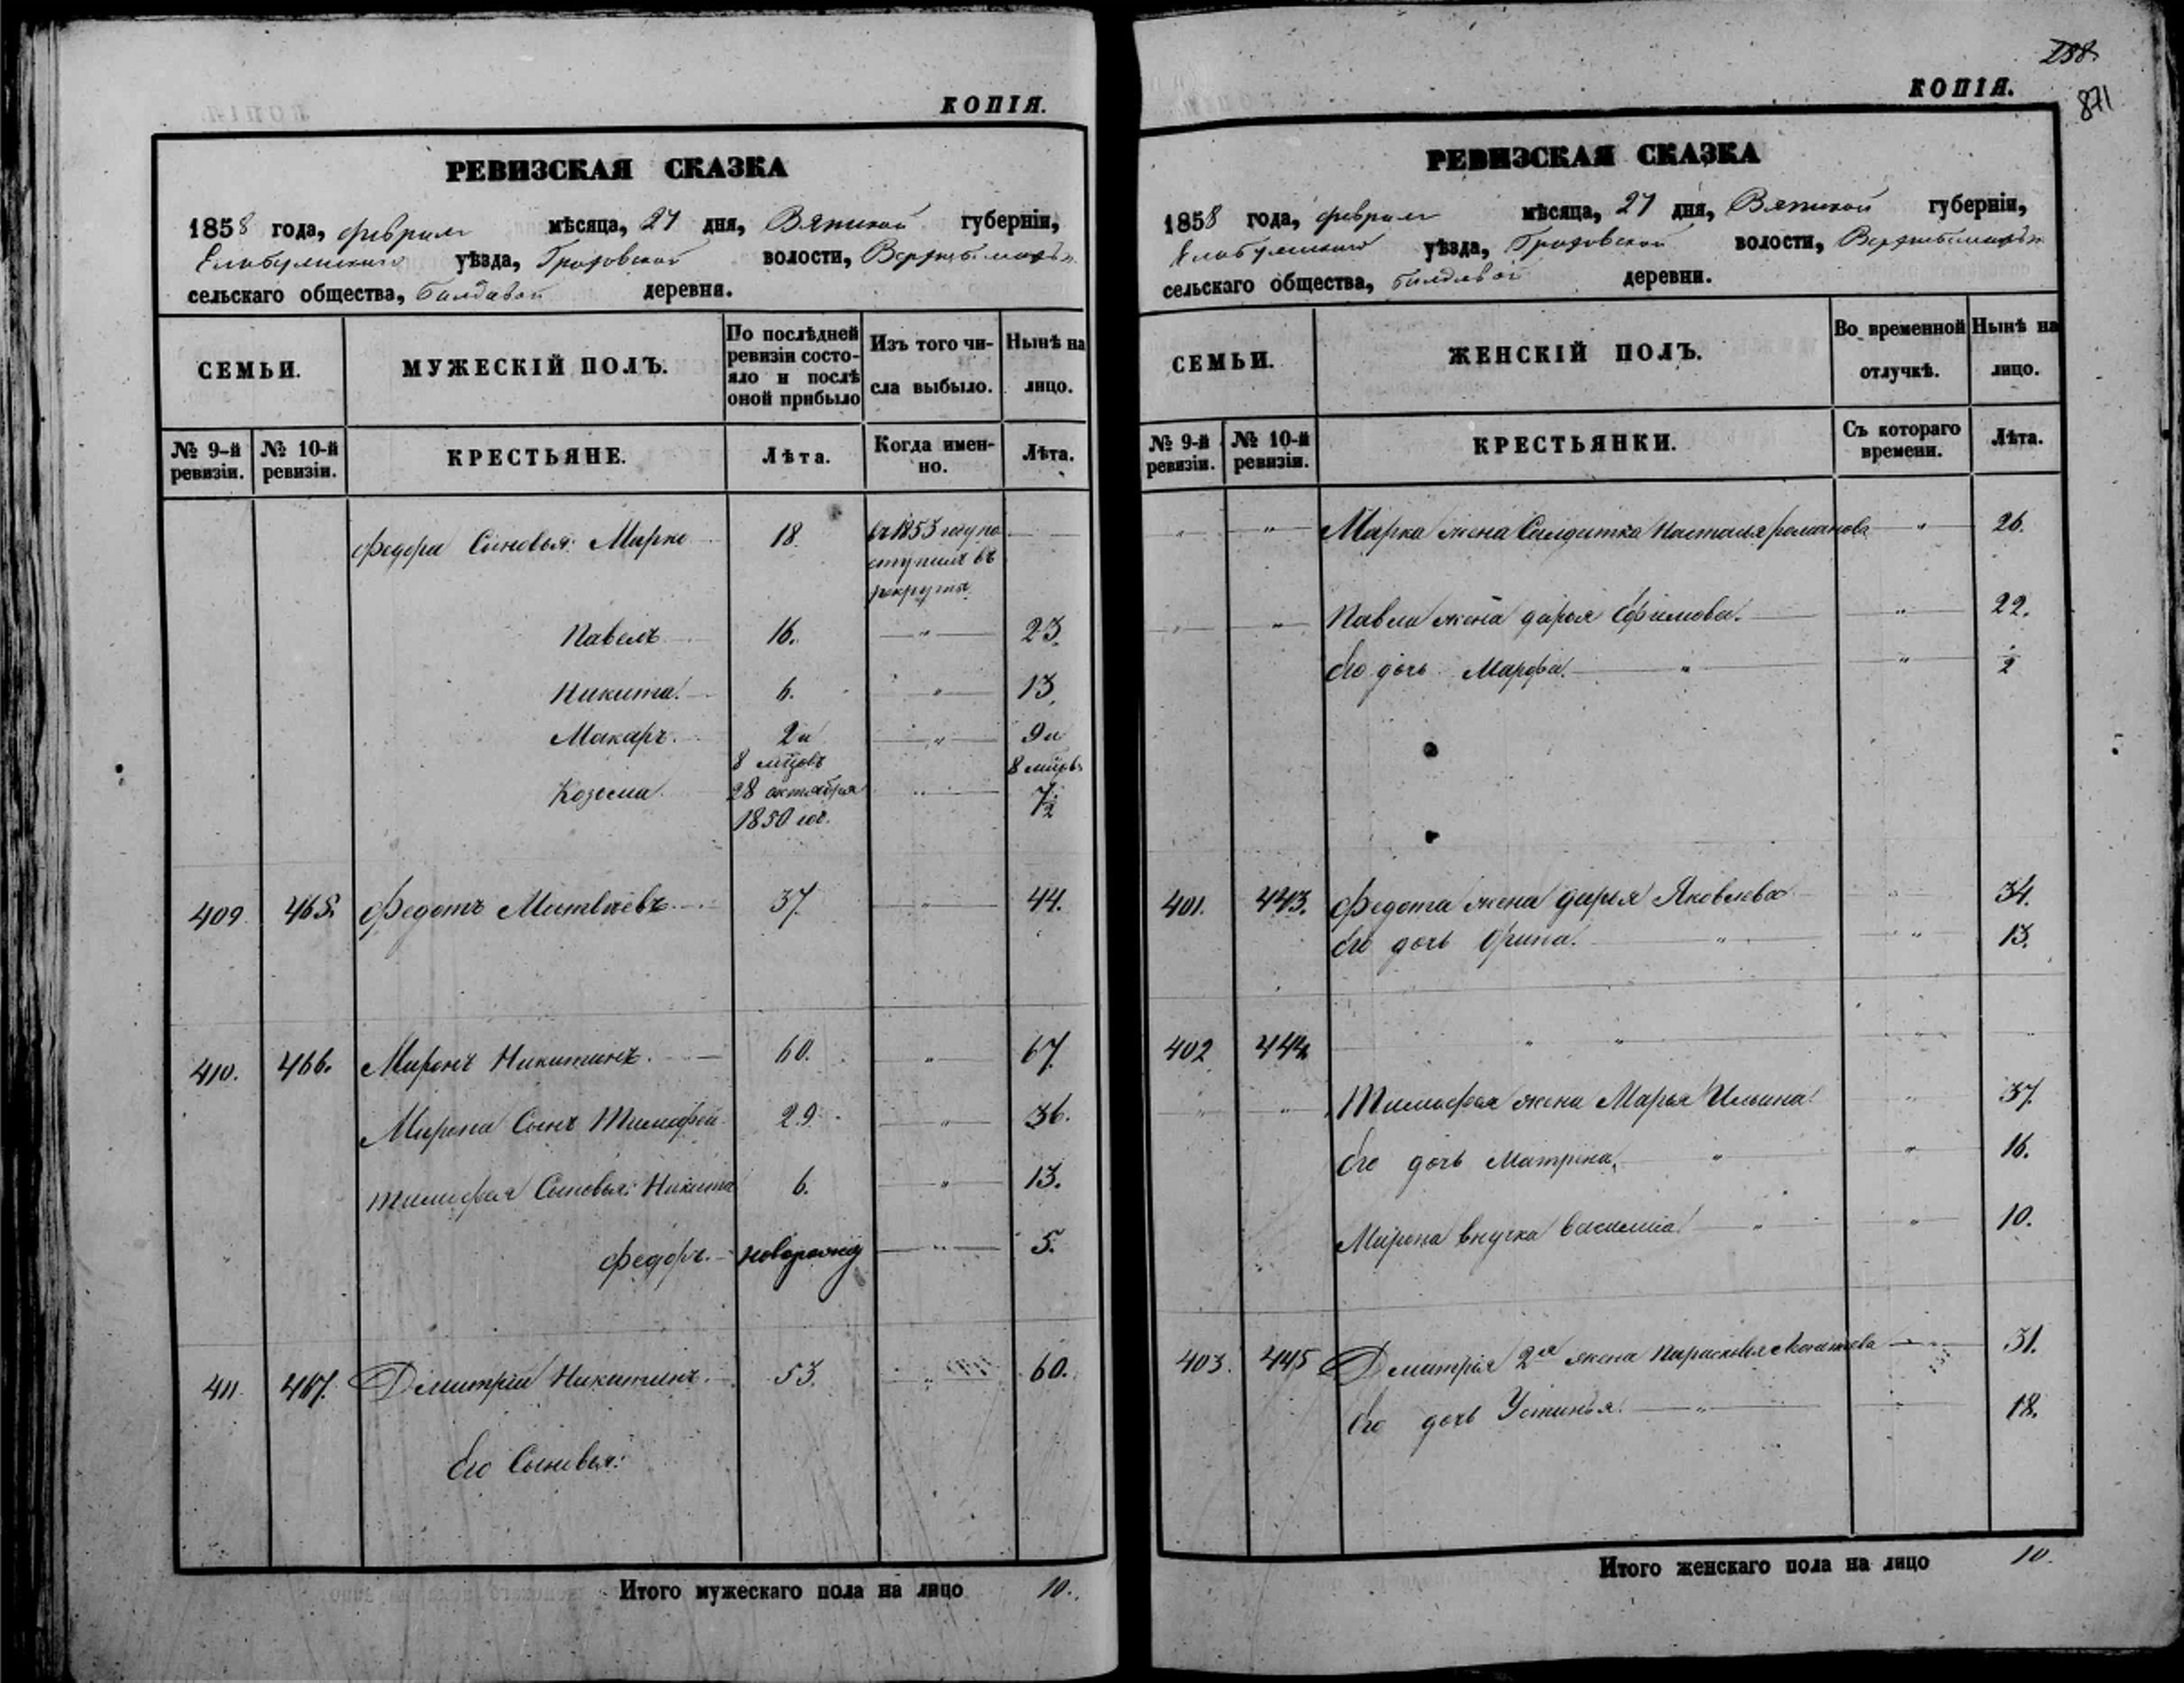 КОПІЯ.
РЕВИЗСКАЯ СКАЗКА
1858 года, февраля мѣсяца, 27 дня, Вятской губерніи,
Елабужскаго уѣзда, Граховской волости,
сельскаго общества, деревня.
СЕМЬИ.
МУЖЕСКІЙ ПОЛЪ.
По послѣдней
ревизіи состо-
яло и послѣ
оной прибыло
Изъ того чи-
сла выбыло.
Нынѣ на
лицо.
№ 9-й
ревизіи.
№ 10-й
ревизіи.
КРЕСТЬЯНЕ.
Лѣта.
Когда имен-
но.
Лѣта.
Федора Сыновья: Марко 18. въ 1853 году по
ступилъ въ
рекруты
Павелъ 16. " 23.
Никита. 6. " 13.
Макаръ. 2 и " 9 и
8 мцовъ 8 мцовъ
Козьма. 28 октября " 7 1/2
1850 го.
409 465. Федотъ Матвѣевъ. 37. " 44.
410. 466. Миронъ Никитинъ. 60. " 67.
Мирона Сынъ Тимофей 29. " 36.
Тимофея Сыновья: Никита 6. " 13.
Федоръ. " 5.
411 467. Дмитрій Никитинъ. 53. " 60.
Его Сыновья:
Итого мужескаго пола на лицо 10.
288.
871
КОПІЯ.
РЕВИЗСКАЯ СКАЗКА
1858 года, февраля мѣсяца, 27 дня, Вятской губерніи,
Елабужскаго уѣзда, Граховской волости,
сельскаго общества, деревни.
СЕМЬИ.
ЖЕНСКІЙ ПОЛЪ.
Во временной
отлучкѣ.
Нынѣ на
лицо.
№ 9-й
ревизіи.
№ 10-й
ревизіи.
КРЕСТЬЯНКИ.
Съ котораго
времени.
Лѣта.
" " Марка жена Солдатка Настасья романова " 26.
" " Павла жена дарья Ефимова. " 22.
Его дочь Марфа. " " 1/2
401. 443. Федота жена дарья Яковлева " 34.
Его дочь Орина. " " 13.
402 444 " " " "
" " Тимофея жена Марья Ильина " 37.
Его дочь Матрена, " " 16.
Мирона внучка Василиса " " 10.
403. 445 Дмитрія 2ая жена Парасковья " 31.
Его дочь Устинья. " " 18.
Итого женскаго пола на лицо 10.